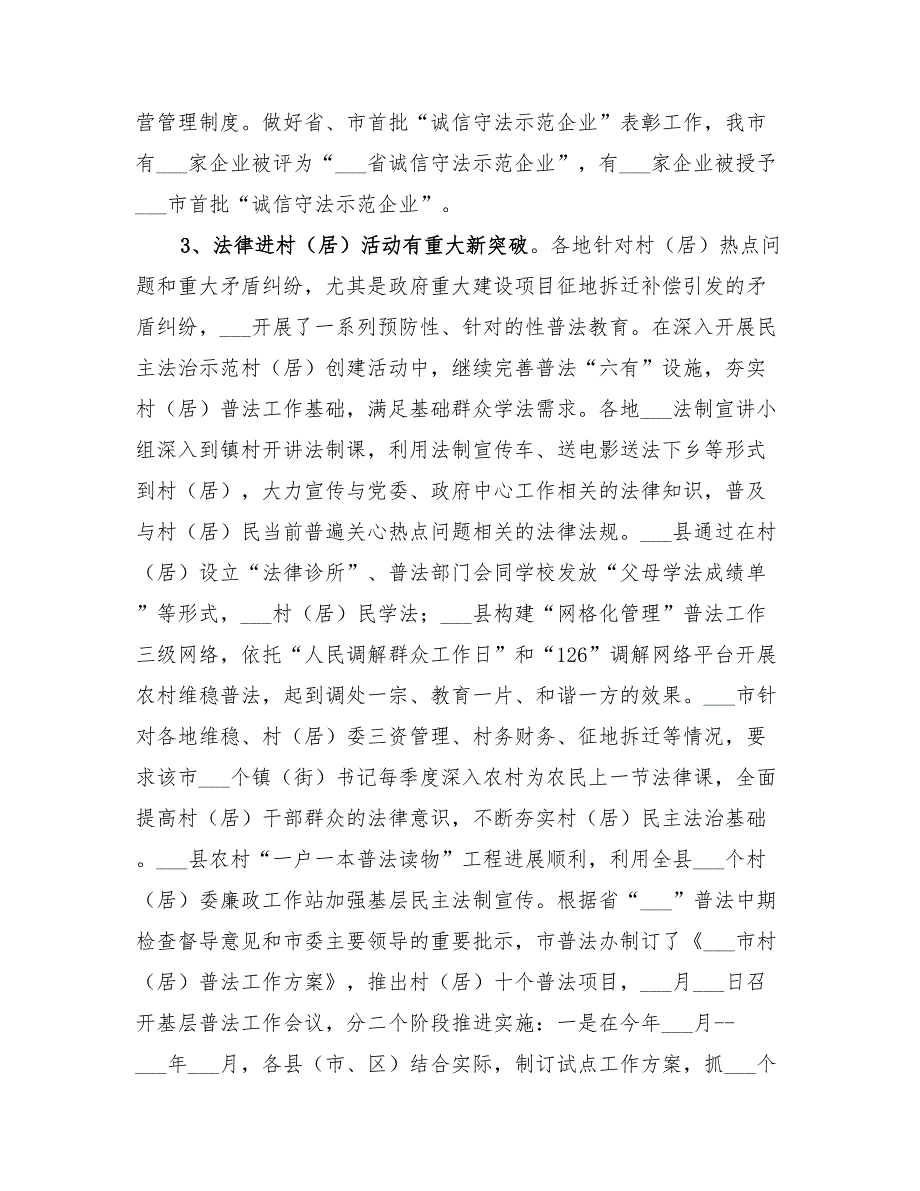 营管理制度。做好省、市首批“诚信守法示范企业”表彰工作，我市
有___家企业被评为“___省诚信守法示范企业”，有___家企业被授予
___市首批“诚信守法示范企业”。
3、法律进村（居）活动有重大新突破。各地针对村（居）热点问
题和重大矛盾纠纷，尤其是政府重大建设项目征地拆迁补偿引发的矛
盾纠纷，___开展了一系列预防性、针对的性普法教育。在深入开展民
主法治示范村（居）创建活动中，继续完善普法“六有”设施，夯实
村（居）普法工作基础，满足基础群众学法需求。各地___法制宣讲小
组深入到镇村开讲法制课，利用法制宣传车、送电影送法下乡等形式
到村（居），大力宣传与党委、政府中心工作相关的法律知识，普及
与村（居）民当前普遍关心热点问题相关的法律法规。___县通过在村
（居）设立“法律诊所”、普法部门会同学校发放“父母学法成绩单
”等形式，___村（居）民学法；___县构建“网格化管理”普法工作
三级网络，依托“人民调解群众工作日”和“126”调解网络平台开展
农村维稳普法，起到调处一宗、教育一片、和谐一方的效果。___市针
对各地维稳、村（居）委三资管理、村务财务、征地拆迁等情况，要
求该市___个镇（街）书记每季度深入农村为农民上一节法律课，全面
提高村（居）干部群众的法律意识，不断夯实村（居）民主法治基础
。___县农村“一户一本普法读物”工程进展顺利，利用全县___个村
（居）委廉政工作站加强基层民主法制宣传。根据省“___”普法中期
检查督导意见和市委主要领导的重要批示，市普法办制订了《___市村
（居）普法工作方案》，推出村（居）十个普法项目，___月___日召
开基层普法工作会议，分二个阶段推进实施：一是在今年___月--
___年___月，各县（市、区）结合实际，制订试点工作方案，抓___个